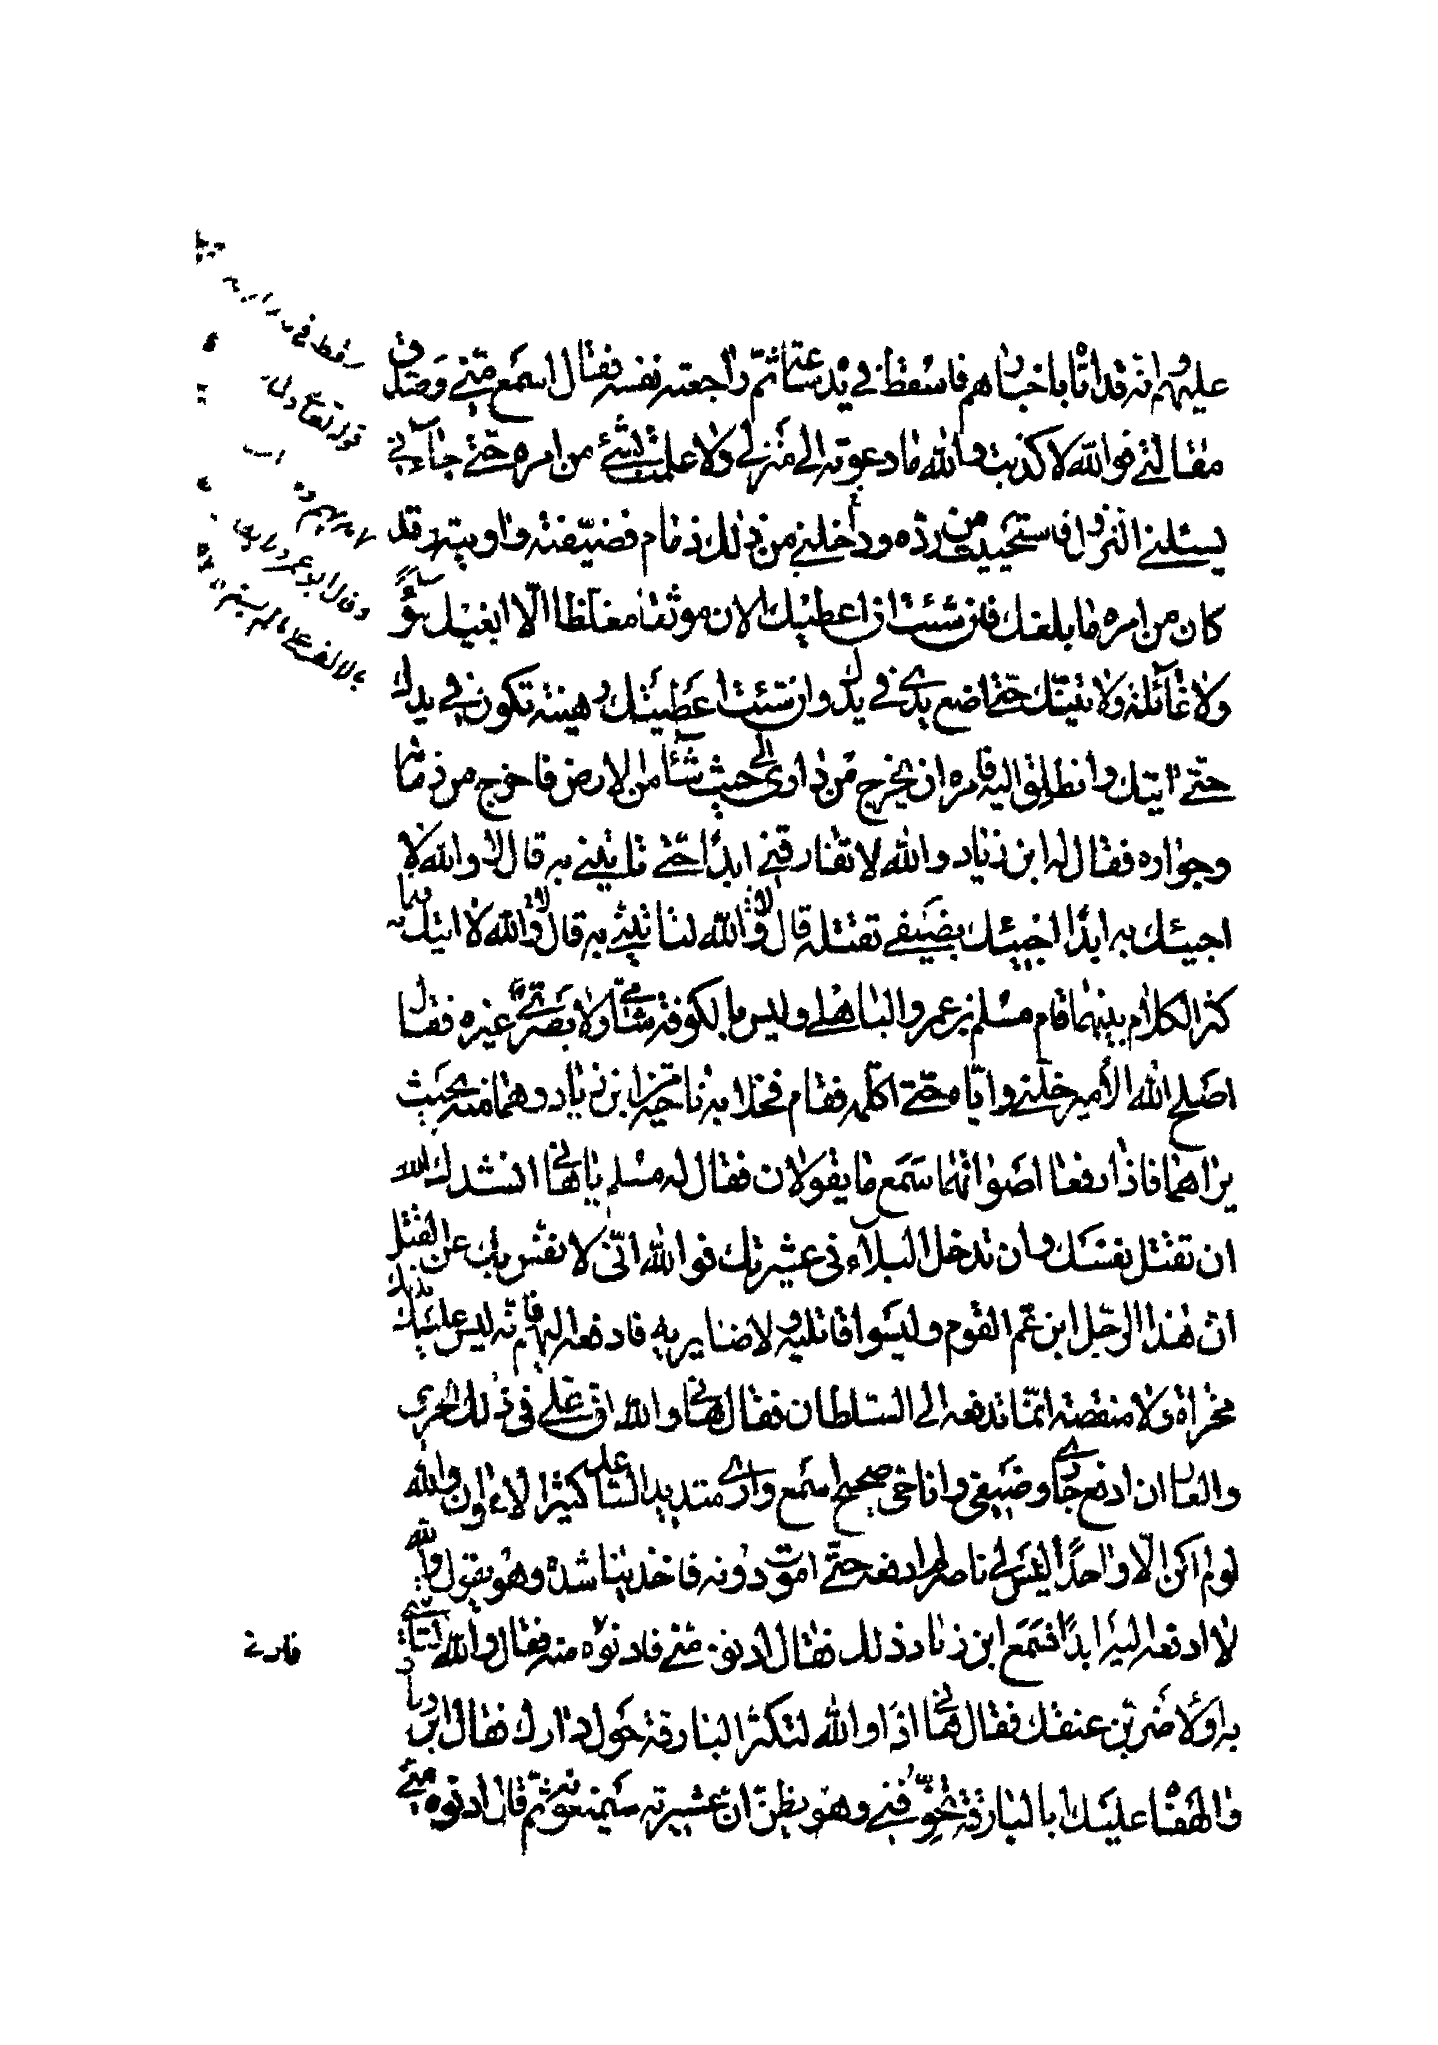 عليهم وانه قد اتاه باخبارهم فاسقط في يده ساعة ثم راجعته نفسه فقال اسمع مني وصدق
مقالتي فوالله لا كذبت والله ما دعوته الى منزلي ولا علمت بشئ من امره حتى جاءني
يسئلني النزول فاستحييت من رده ودخلني من ذلك ذمام فضيفته واويته وقد
كان من امره ما بلغك فان شئت ان اعطيك الان موثقا مغلظا الا ابغيك سوءا
ولا غائلة ولاتينك حتى اضع يدي في يدك وان شئت اعطيتك رهينة تكون في يدك
حتى اتيك وانطلق اليه فامره ان يخرج من داري الى حيث شاء من الارض فاخرج من ذمامه
وجواره فقال له ابن زياد والله لا تفارقني ابدا حتى تاتيني به قال لا والله لا
اجيئك به ابدا اجيئك بضيفي تقتله قال والله لتاتيني به قال لا والله لا اتيك به فلما
كثر الكلام بينهما قام مسلم بن عمرو الباهلي وليس بالكوفة شامي ولا بصري غيره فقال
اصلح الله الامير خلني واياه حتى اكلمه فقام فخلا به ناحية من ابن زياد وهما منه بحيث
يراهما فاذا رفعا اصواتهما سمع ما يقولان فقال له مسلم يا هاني انشدك الله
ان تقتل نفسك وان تدخل البلاء في عشيرتك فوالله اني لانفس بك عن القتل
ان هذا الرجل ابن عم القوم وليسوا قاتليه ولا ضايريه فادفعه اليهم فانه ليس عليك بذلك
مخزاة ولا منقصة انما تدفعه الى السلطان فقال هاني والله ان علي في ذلك الخزي
والعار ان ادفع جاري وضيفي وانا حي صحيح اسمع واري شديد الساعد كثير الاعوان والله
لو لم اكن الا واحدا ليس لي ناصر لم ادفعه حتى اموت دونه فاخذ يناشده وهو يقول والله
لا ادفعه اليه ابدا فسمع ابن زياد ذلك فقال ادنوه مني فادنوه منه فقال والله لتاتيني
به او لاضربن عنقك فقال هاني اذا والله لتكثر البارقة حول دارك فقال ابن زياد
والهفاه عليك ابالبارقة تخوفني وهو يظن ان عشيرته سيمنعونه ثم قال ادنوه مني
سقط في
قوله تعالى